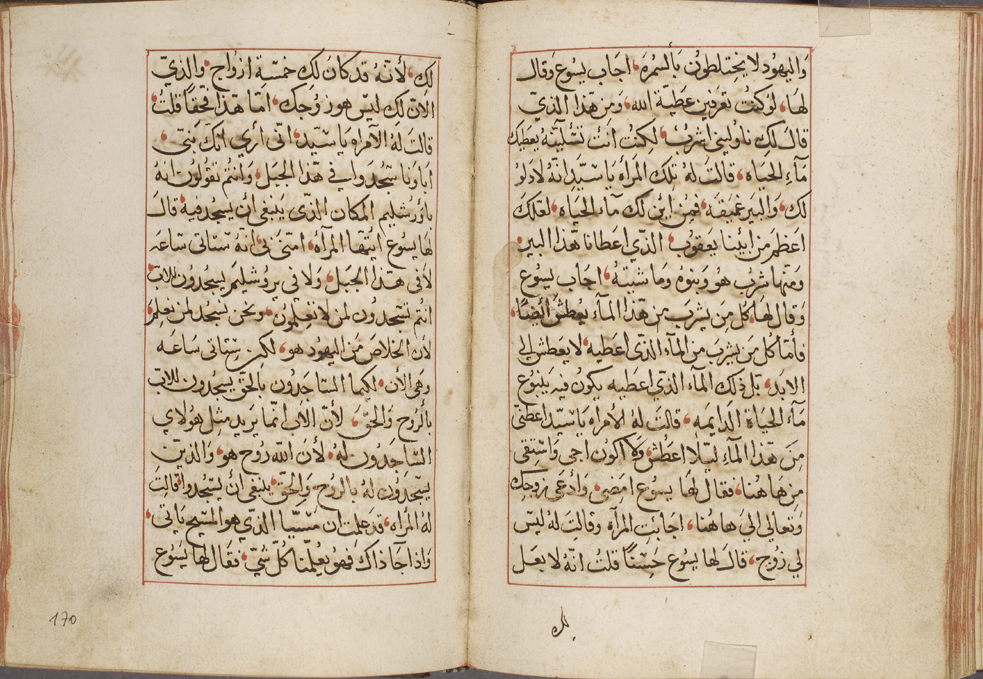 واليهود لا يختلطون بالسمرة اجاب يسوع وقال
لها لو كنت تعرفين عطية الله ومن هذا الذي
قال لك ناوليني اشرب لكنت انت تسليته يعطيك
مآء الحياة قالت له تلك المرأة يا سيد انه لا دلو
لك والبير عميقة فمن اين لك مآء الحياة لعلك
اعظم من ابينا يعقوب الذي اعطانا هذا البير
ومنها شرب هو وبنوه وماشيته اجاب يسوع
وقال لها كل من يشرب من هذا المآء يعطش ايضًا
فأما كل من يشرب من المآء الذي اعطيه لا يعطش الي
الابد بل ذلك المآء الذي اعطيه يكون فيه ينبوع
مآء الحياة الدايمه قالت له الامراه يا سيد اعطني
من هذا المآء ليلا اعطش ولا اكون اجي واستقي
من هاهنا فقال لها يسوع امضي وادعي زوجك
وتعالي الي هاهنا اجابت المرآه وقالت له ليس
لي زوج قال لها يسوع حسنًا قلت انه لا بعل
لك
لك لأنه قد كان لك خمسة ازواج والذي
الان لك ليس هو زوجك اما هذا فحقًا قلت
قالت له الامراه يا سيد اني أري انك نبي
أباونا سجدوا في هذا الجبل وانتم تقولون انه
باورشليم المكان الذي ينبغي ان يسجد فيه قال
لها يسوع ايتها المرآه امني بي انه ستاتي ساعه
لا في هذا الجبل ولا في يروشليم يسجدون للاب
انتم تسجدون لمن لا تعلمون ونحن نسجد لمن نعلم
لأن الخلاص من اليهود هو لكن ستاتي ساعه
وهي الأن لكيما الساجدون بالحق يسجدون للاب
بالروح والحق لأن الاب انما يريد مثل هولاي
الساجدون له لأن الله روح هو والذين
يسجدون له بالروح والحق ينبغي أن يسجدوا قالت
له المراه قد علمت ان مسيا الذي هو المسيح ياتي
واذا جا ذاك فهو يعلمنا كل شي فقال لها يسوع
170